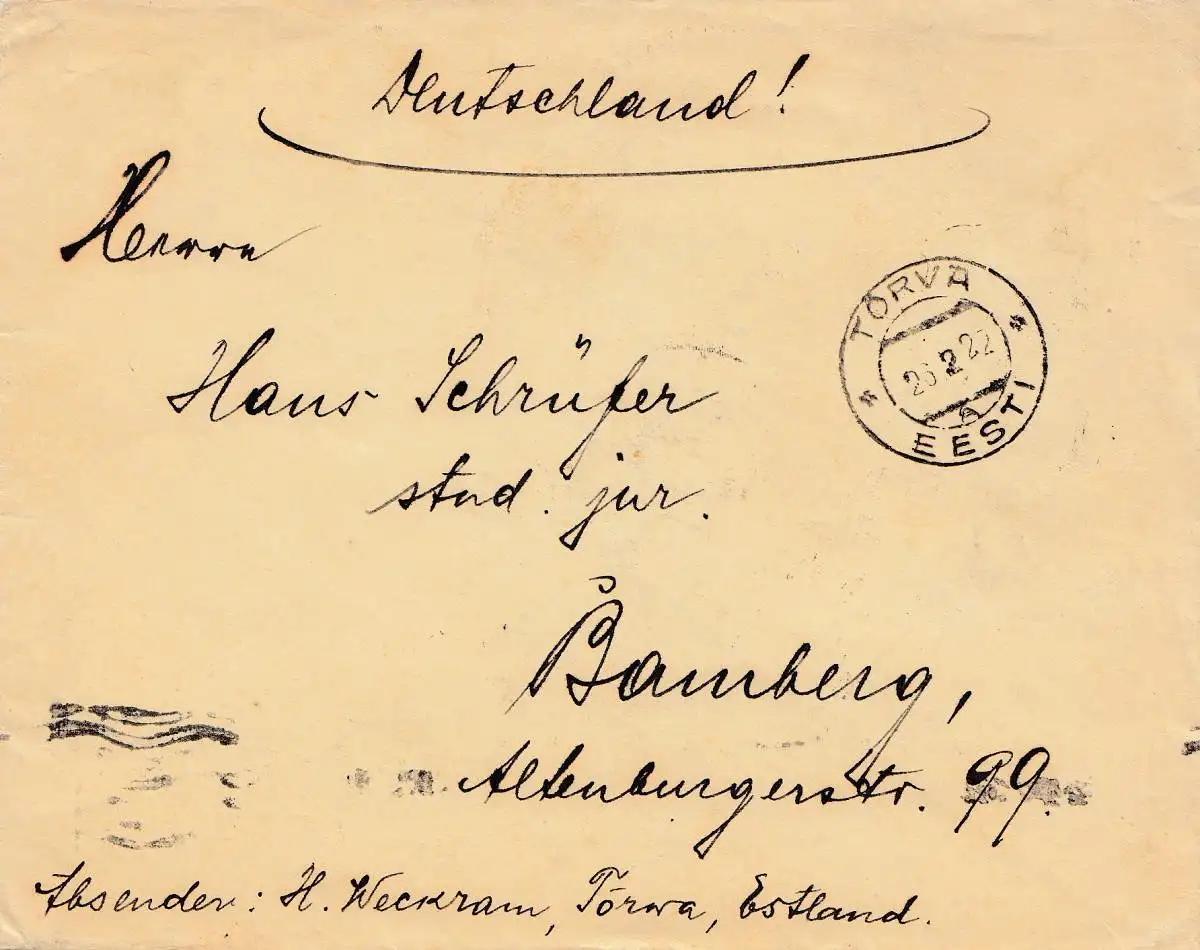 Deutschland!
Herrn
TÕRVA
26 2 22
A
EESTI
Hans Schrüfer
stud. jur.
Bamberg,
Altenburgerstr. 99.
Absender: H. Weckram, Törwa, Estland.